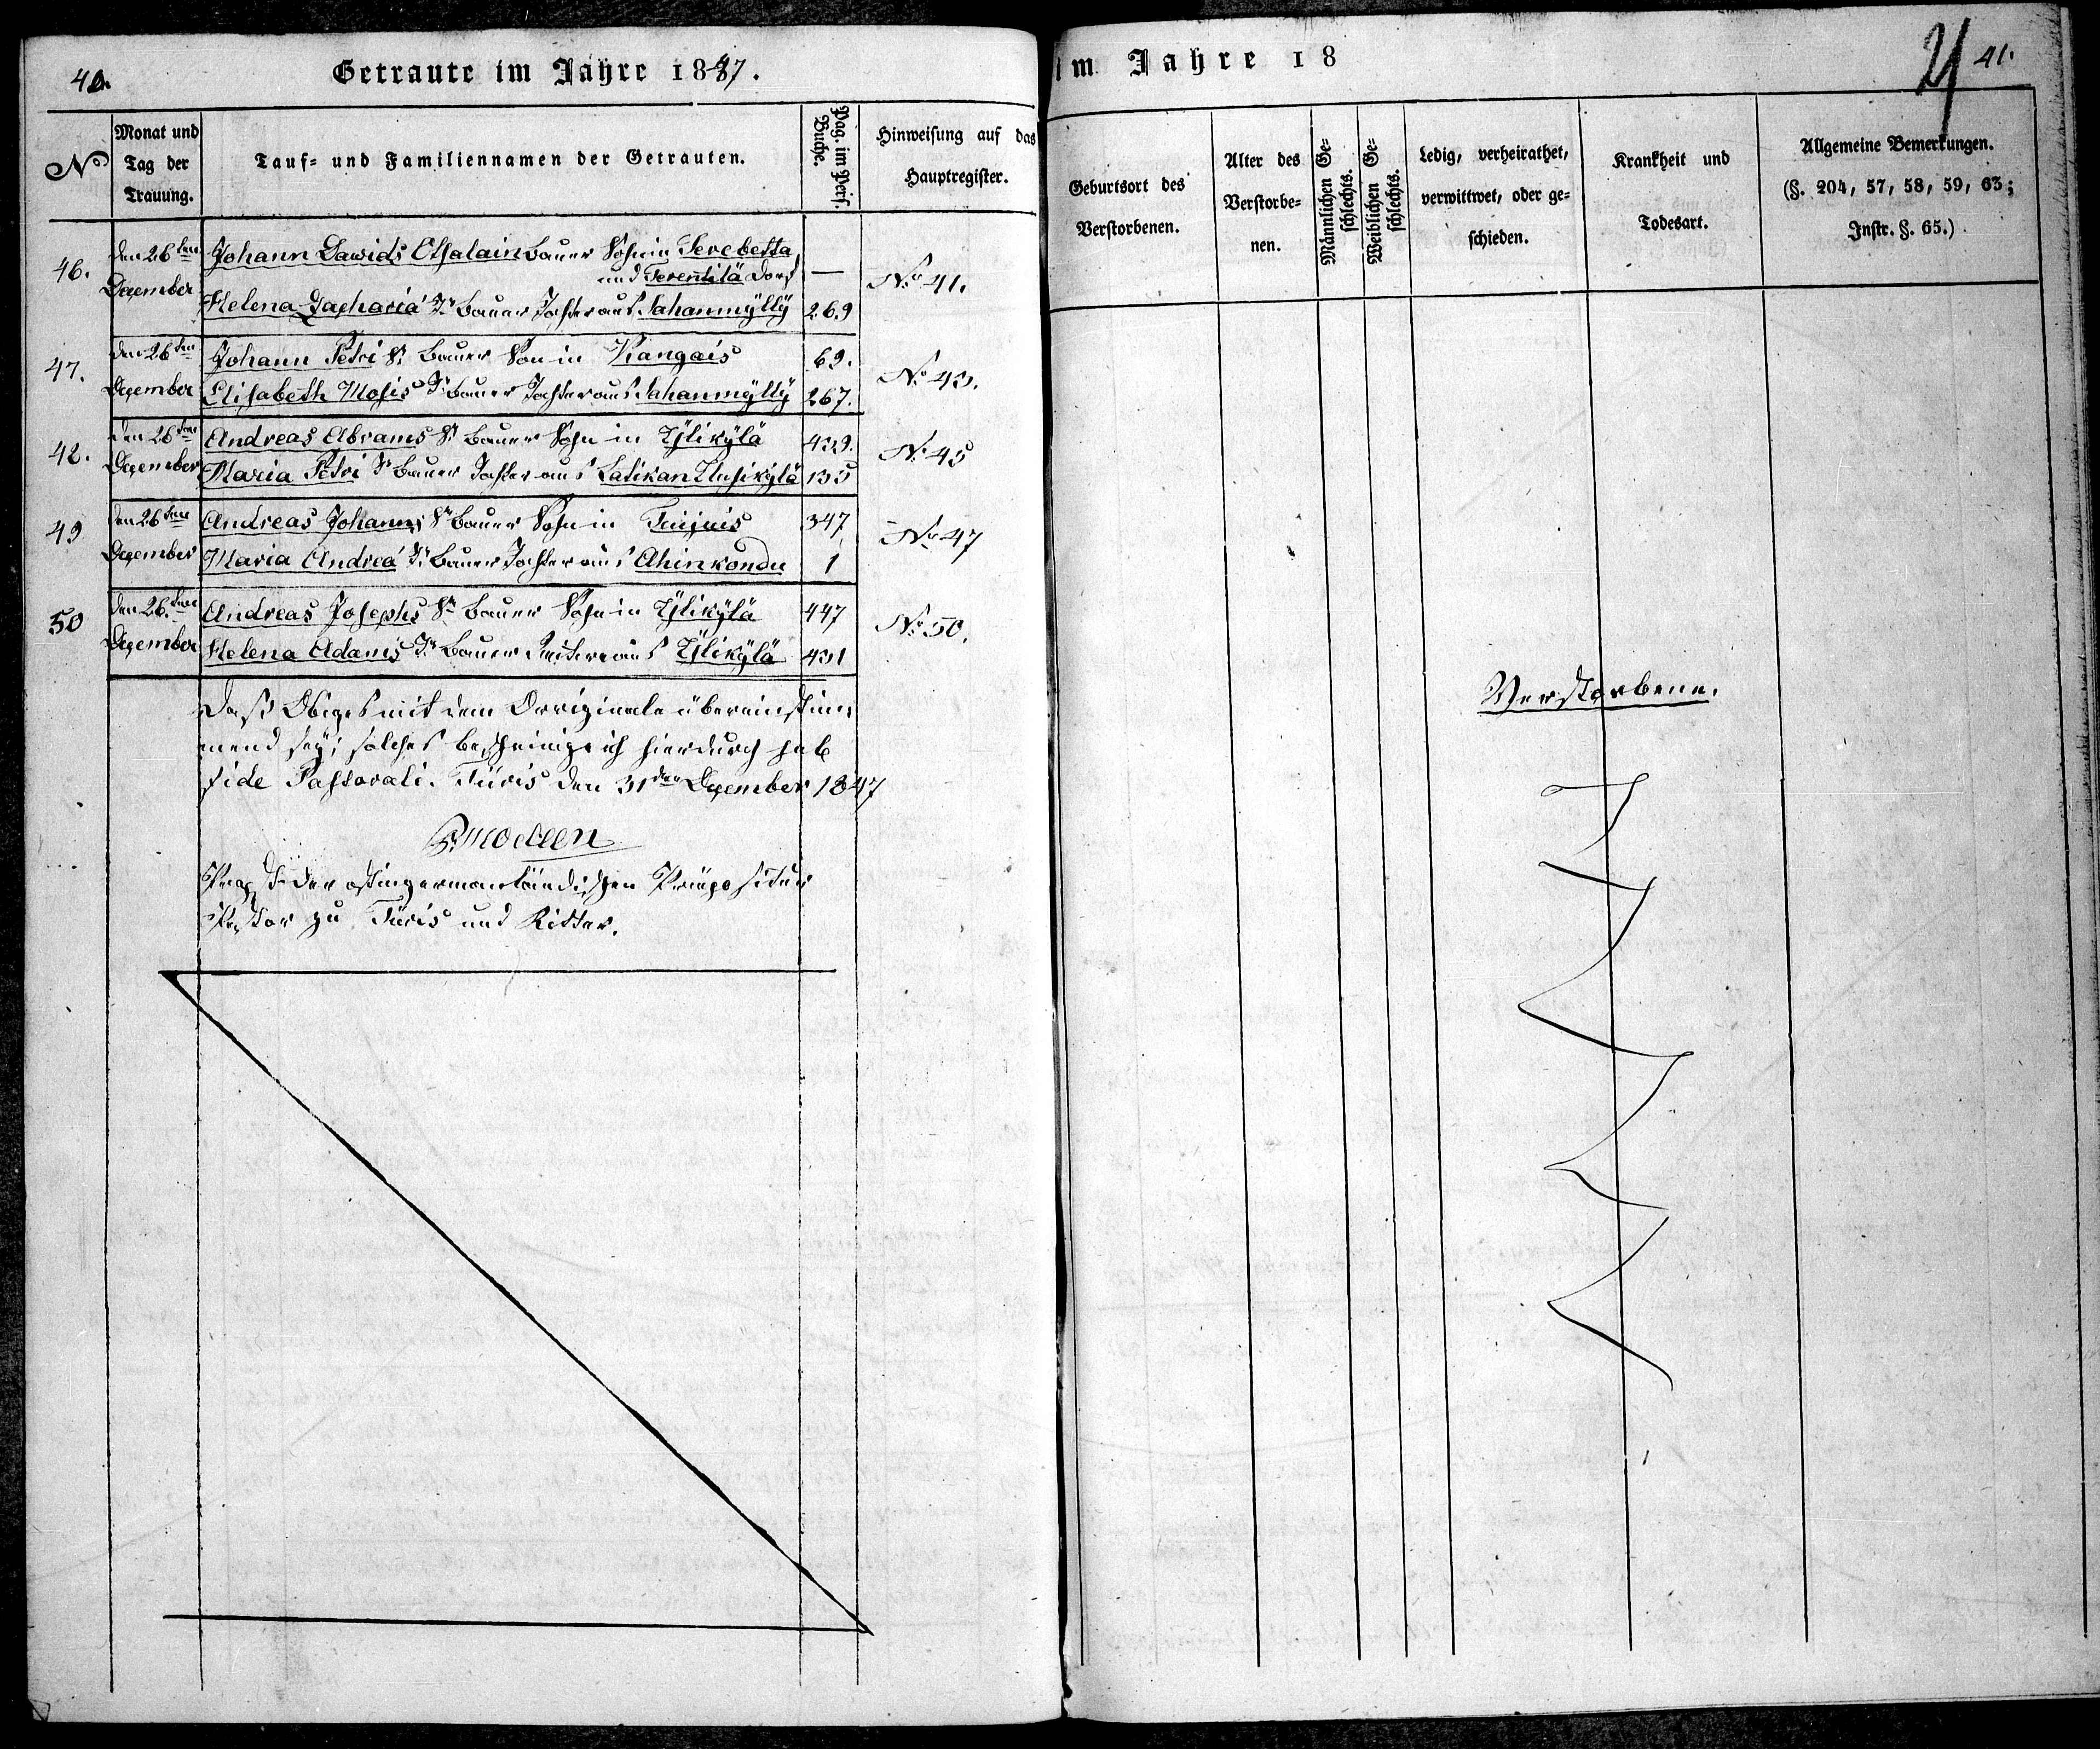 40.
Getraute im Jahre 1847.
No
Monat und
Tag der
Trauung.
Tauf= und Familiennamen der Getrauten.
Pag. im Beiś.
Buche.
Hinweisung auf das
Hauptregister.
46.
den 26ten
December
Johann Dawids Bauer Sohn in Serebetta
und Terentilä Dorf
—
Helena Zachariä Tr Bauer Tochter aus Sahanmÿllÿ
269
No 41.
47.
den 26ten
December
Johann Petri Sn Bauer Son in Kangais
69.
Elisabeth Mosis Tr Bauer Tochter aus Sahanmÿllÿ
267.
No 43.
42.
den 26ten
December
Andreas Abrams Sn Bauer Sohn in Ÿlikÿlä
439.
Maria Petri Tr Bauer Tochter aus Latikan Uusikÿlä
135
No 45
49
den 26ten
December
Andreas Johanns Sn Bauer Sohn in
347
Maria Andreä Tr Bauer Tochter aus Ahinkondu
1
No 47
50
den 26ten
December
Andreas Josephs Sn Bauer Sohn in Ÿlikÿlä
447
Helena Adams Tr Bauer aus Ÿlikÿlä
431
No 50.
Daß Obiges mit dem Originale übereinstim=
mend seÿ, solches bescheinige ich hierdurch sub
fide Pastorali. Türis den 31ten December 1847
Propst der ostingermanländischen Präpositur
Pastor zu Türis und Ritter.
im Jahre 18
21
41.
Geburtsort des
Verstorbenen.
Alter des
Verstorbe=
nen.
Männlichen Ge=
schlechts.
Weiblichen Ge=
schlechts.
Ledig, verheirathet,
verwittwet, oder ge=
schieden.
Krankheit und
Todesart.
Allgemeine Bemerkungen.
(§. 204, 57, 58, 59, 63;
Instr. §. 65.)
Verstorbene.